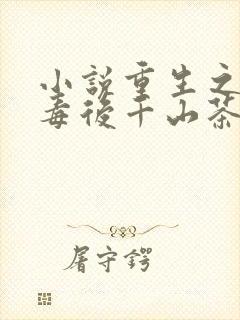 小説重生之
毒後千山茶
屠守鍔